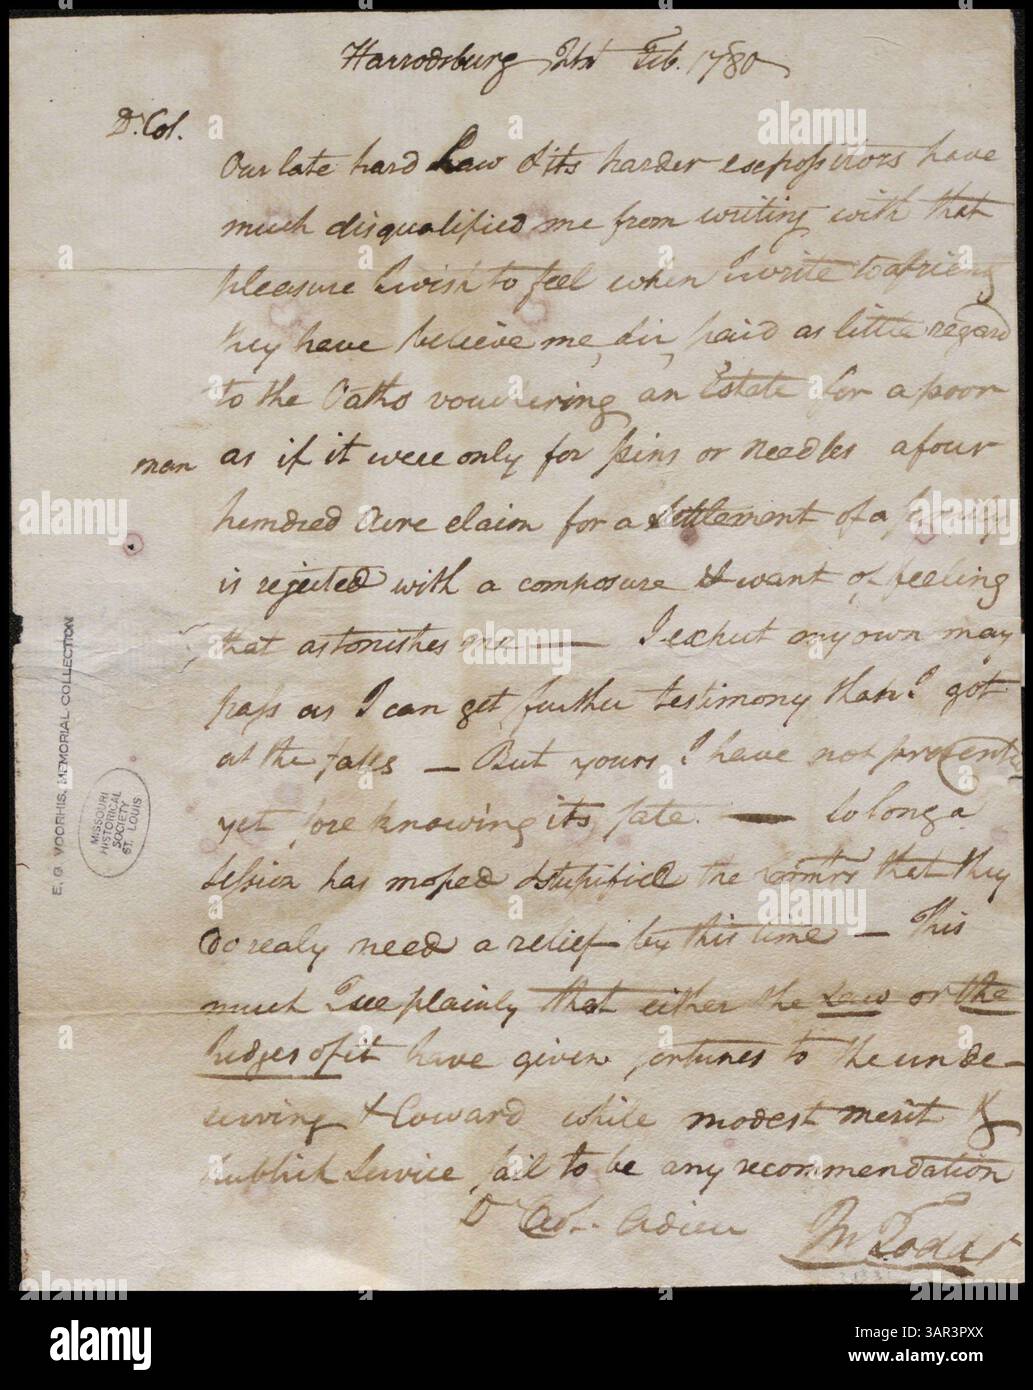 Harrodsburg 21st Feb. 1780
Dr. Col.
Our late hard Law & its harder expositors have
much disqualified me from writing with that
pleasure I wish to feel when I write to a friend
they have believe me, Sir, paid as little regard
to the Oaths vouchering an Estate for a poor
man as if it were only for pins or needles a four
hundred Acre claim for a settlement of a family
is rejected with a composure & want of feeling
that astonishes me — I expect my own may
pass as I can get further testimony than I got
at the falls — But yours I have not presented
yet fore knowing its fate. — So long a
session has moped & stupified the Comrs that they
do realy need a relief by this time — This
much I see plainly that either the Law or the
Judges of it have given fortunes to the unde-
serving & Coward while modest merit &
Publick Service fail to be any recommendation
Dr Col. Adieu
Jn Todd Jr
E. G. VOORHIS, MEMORIAL COLLECTION
MISSOURI
HISTORICAL
SOCIETY
ST. LOUIS
alamy
Image ID: 3AR3PXX
www.alamy.com